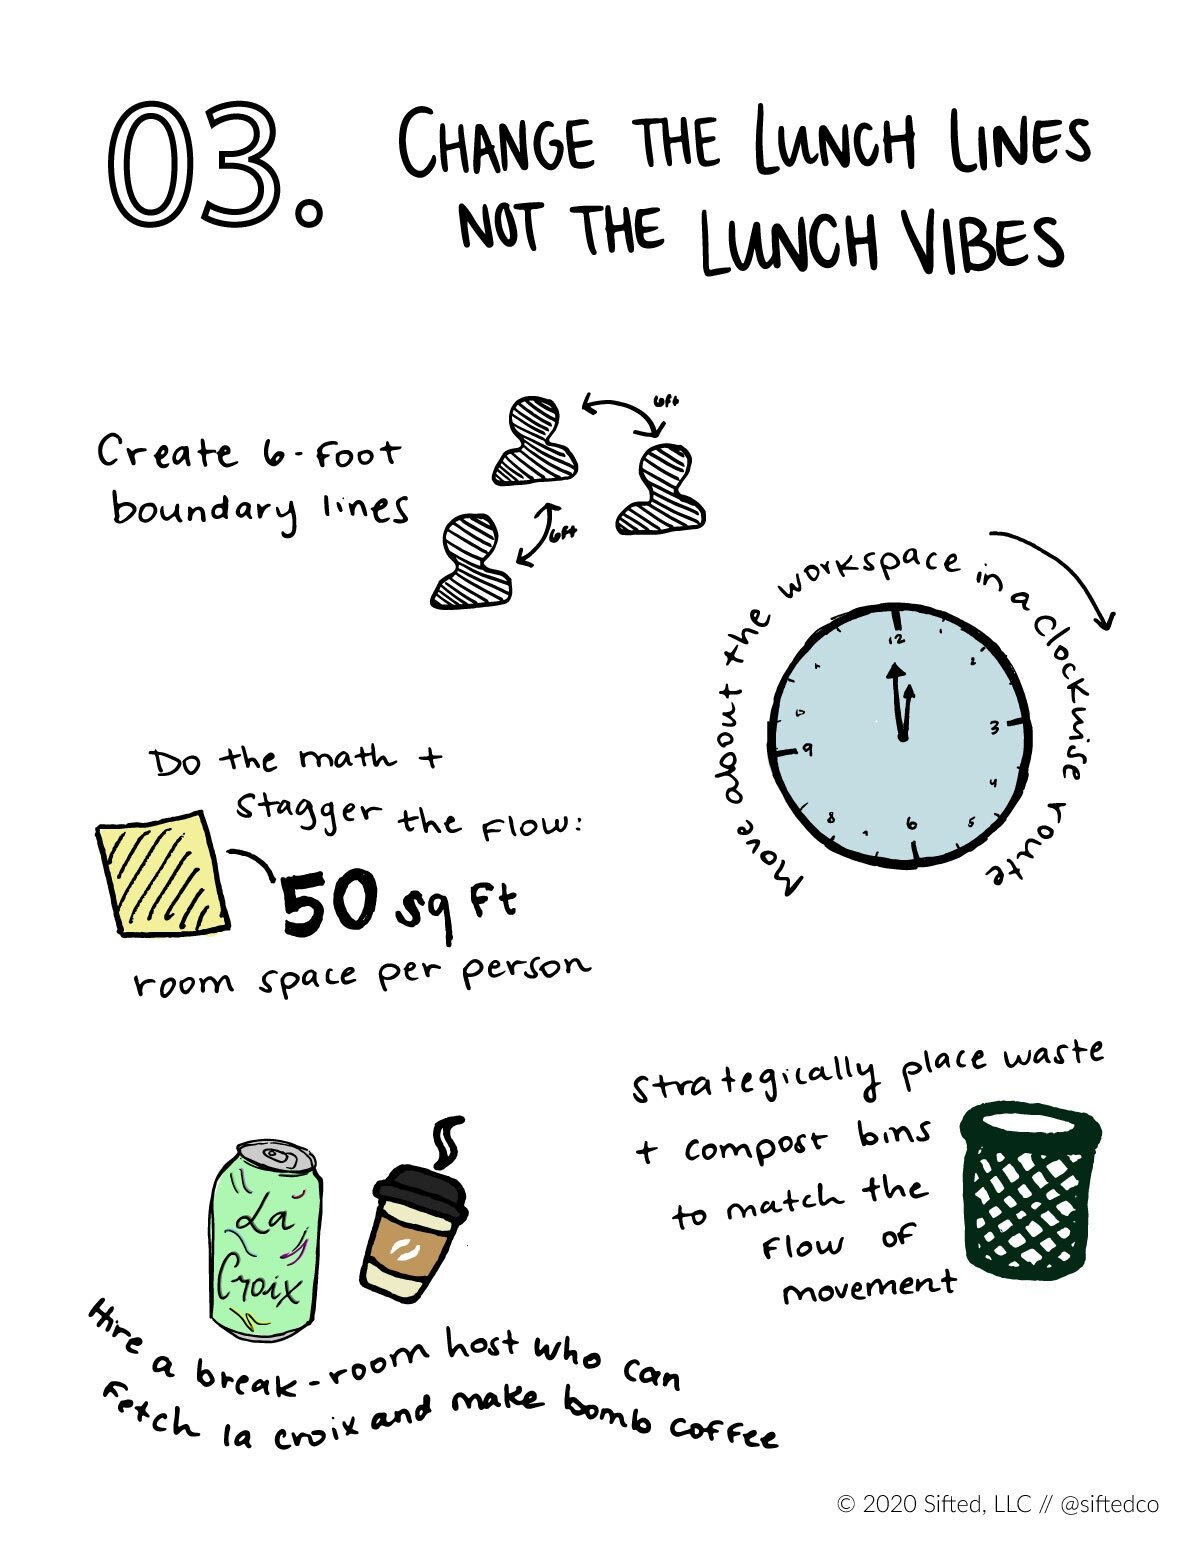 03.
CHANGE THE LUNCH LINES
NOT THE LUNCH VIBES
Create 6-foot
boundary lines
6ft
6ft
Move about the workspace in a clockwise route
12
1
2
3
4
5
6
7
8
9
Do the math +
stagger the flow:
50 sq ft
room space per person
strategically place waste
+ compost bins
to match the
flow of
movement
La
Croix
Hire a break-room host who can
fetch la croix and make bomb coffee
© 2020 Sifted, LLC // @siftedco